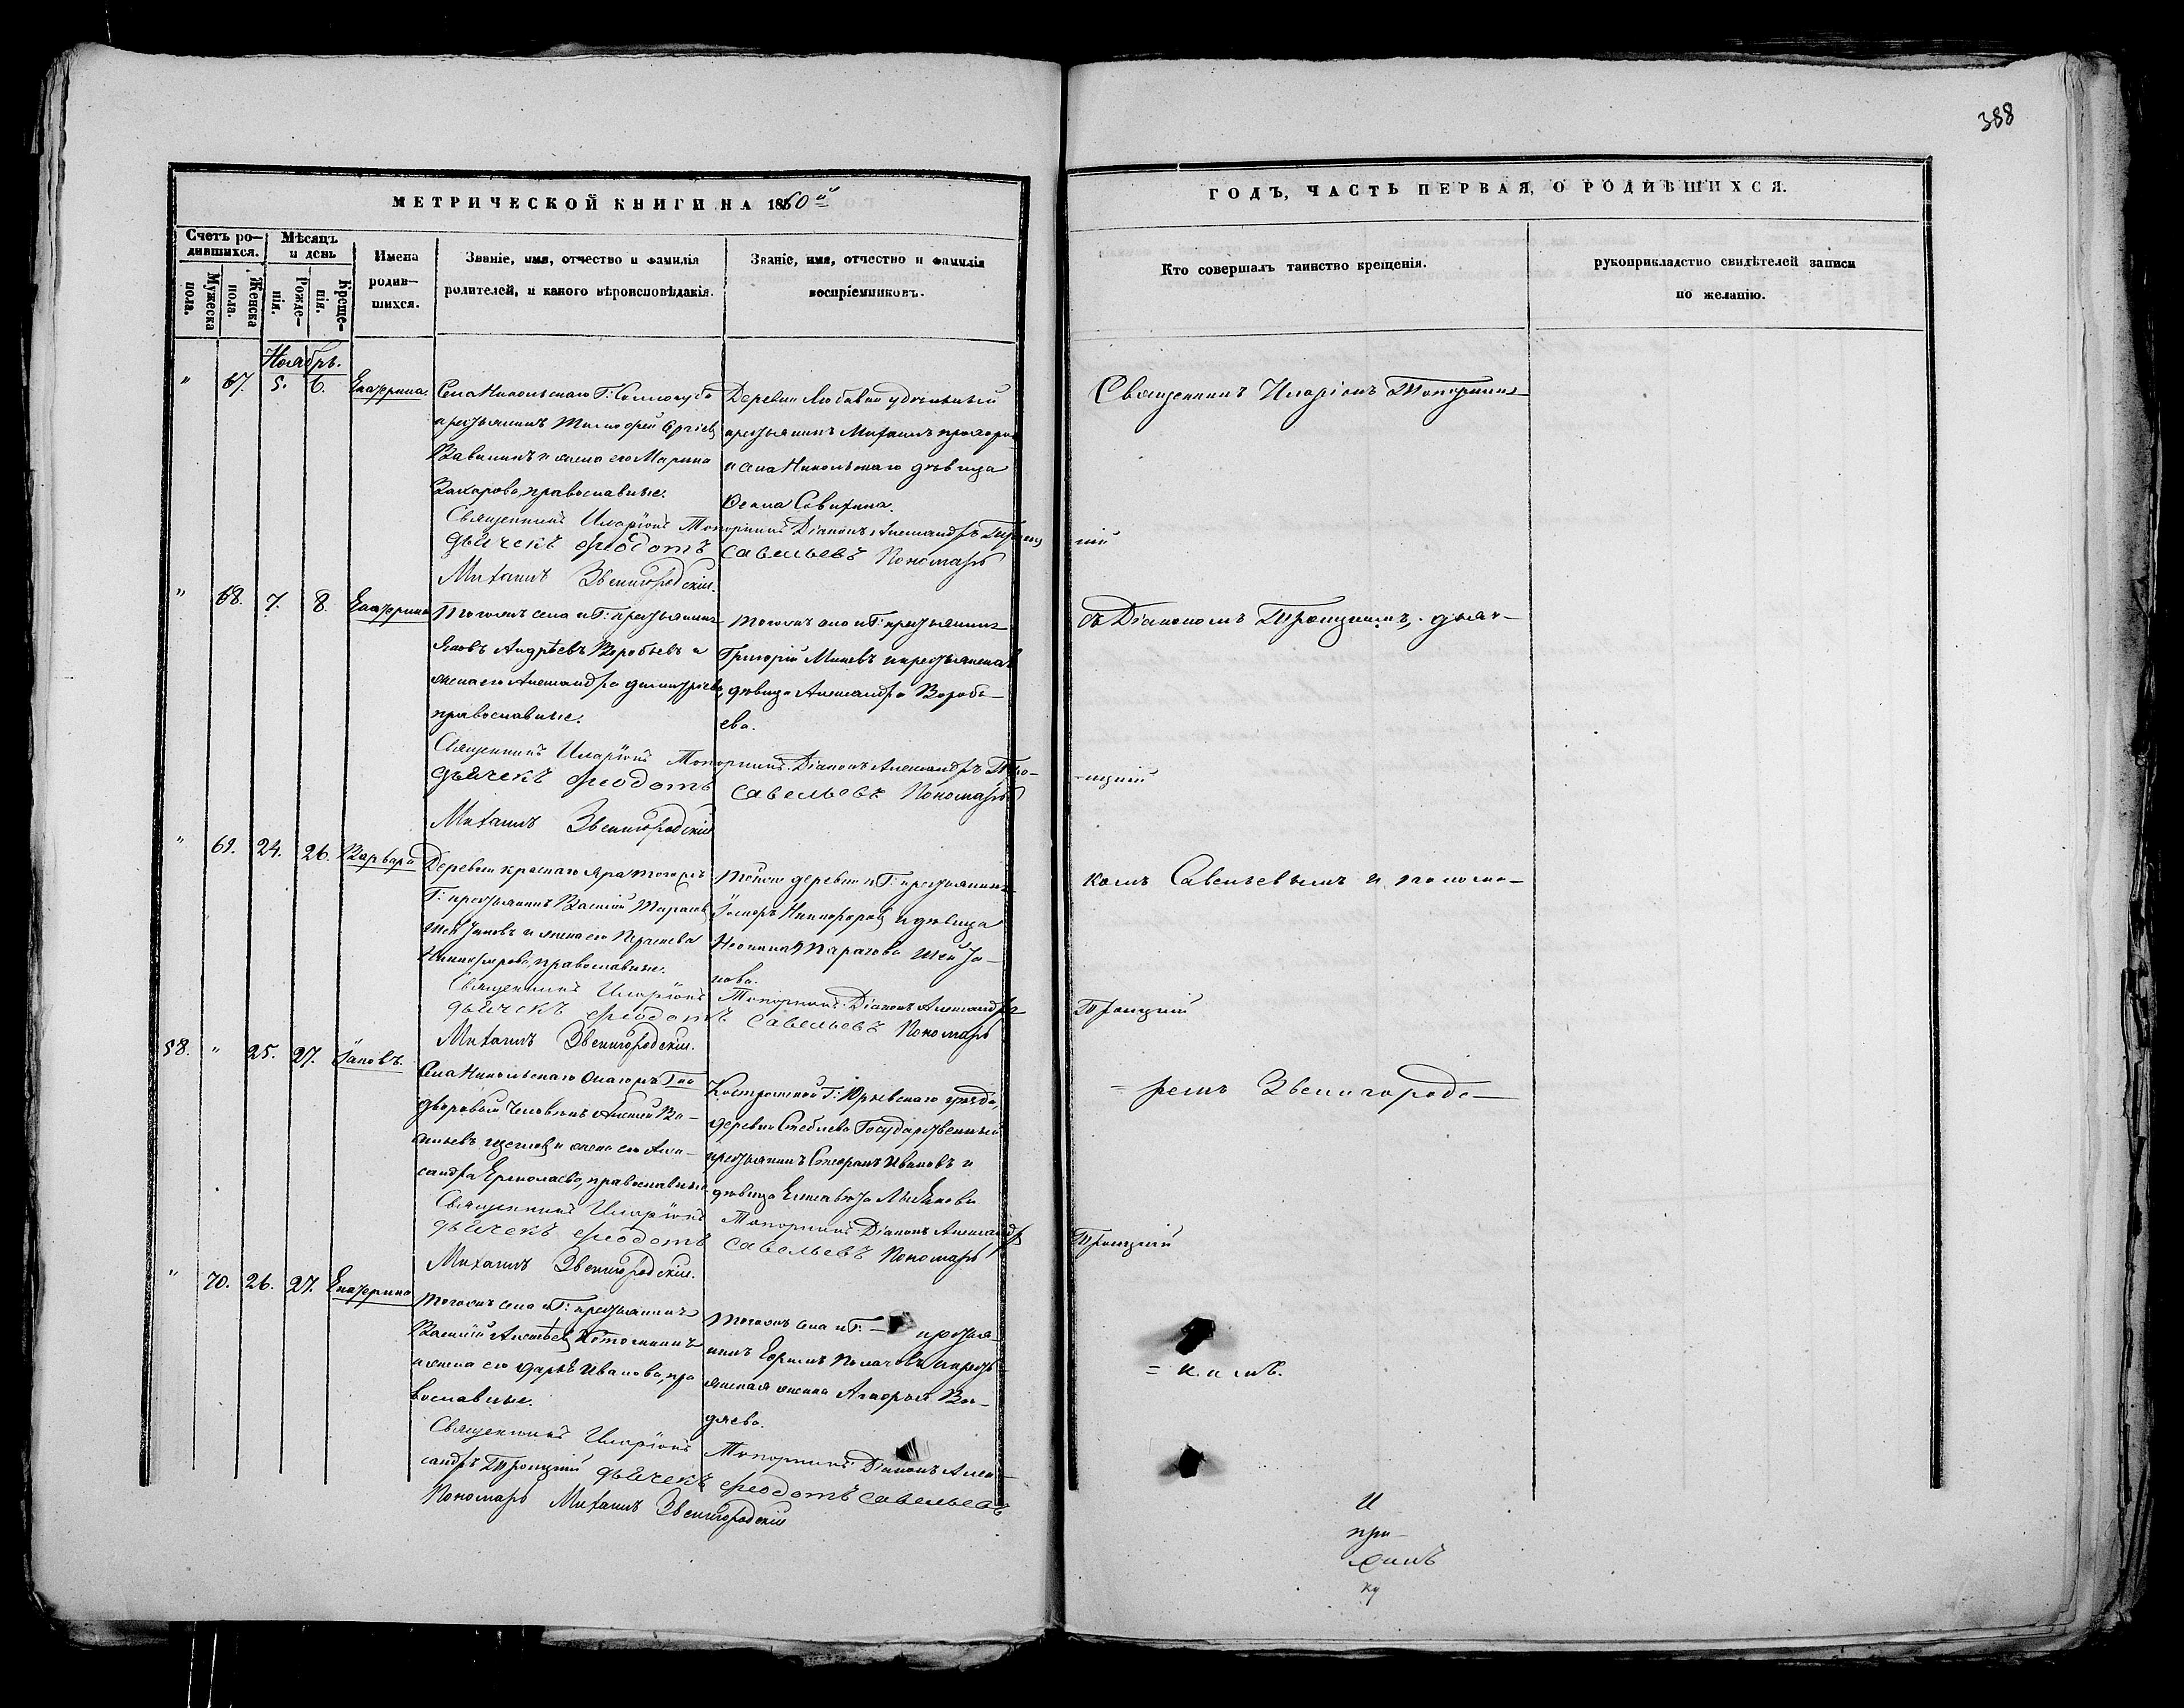 388
МЕТРИЧЕСКОЙ КНИГИ НА 1860й
ГОДЪ, ЧАСТЬ ПЕРВАЯ, О РОДИВШИХСЯ.
Счетъ ро-
дившихся.
Мужеска
пола.
Женска
пола.
Мѣсяцъ
и день
Рожде-
нія.
Креще-
нія.
Имена
родив-
шихся.
Званіе, имя, отчество и фамилія
родителей, и какого вѣроисповѣданія.
Званіе, имя, отчество и фамилія
воспріемниковъ.
Кто совершалъ таинство крещенія.
рукоприкладство свидѣтелей записи
по желанію.
Ноябрь.
" 67. 5. 6. Екатерина.
Села Никольскаго Г:
крестьянинъ Тимофей
Вавилинъ и жена его Марина
Захарова, православные.
Деревни удѣльный
крестьянинъ Михаилъ
и села Никольскаго дѣвица
Священникъ Иларіонъ Топорнинъ
Священникъ Иларіонъ Топорнинъ Діаконъ Александръ Троиц
кій
дьячекъ Феодотъ Савельевъ Пономарь
Михаилъ Звенигородскій.
" 68. 7. 8. Екатерина
Тогожъ села и Г: крестьянинъ
Яковъ Андрѣевъ Воробьевъ и
жена его Александра Димитріева,
православные.
Тогожъ села и Г: крестьянинъ
Григорій Минѣевъ и крестьянская
дѣвица Александра Воробь-
ева.
съ Діакономъ Троицкимъ, дьяч-
Священникъ Иларіонъ Топорнинъ. Діаконъ Александръ Тро-
ицкій
дьячекъ Феодотъ Савельевъ Пономарь
Михаилъ Звенигородскій
" 69. 24. 26. Варвара
Деревни Краснаго Яра тогожъ
Г: крестьянинъ Василій Тарасовъ
и жена его
Никифорова, православные.
Тойже деревни и Г: крестьянинъ
Никифоровъ и дѣвица
Тарасова
нова.
комъ Савельевымъ и понома-
Священникъ Иларіонъ Топорнинъ. Діаконъ Александръ
Троицкій
дьячекъ Феодотъ Савельевъ Пономарь
Михаилъ Звенигородскій.
58. " 25. 27. Іаковъ.
Села Никольскаго
дворовый человѣкъ Алексѣй Ва-
сильевъ и жена его Алек-
сандра Ермолаева, православные
Костромской Г: Юрьевскаго уѣзда,
деревни Государственный
крестьянинъ Стефанъ Ивановъ и
дѣвица Елисавета
= ремъ Звенигородс-
Священникъ Иларіонъ Топорнинъ. Діаконъ Александръ
Троицкій
дьячекъ Феодотъ Савельевъ Пономарь
Михаилъ Звенигородскій.
" 70. 26. 27. Екатерина
Тогожъ села и Г: крестьянинъ
Василій Алексѣевъ
и жена его Дарья Иванова, пра
вославные.
Тогожъ села и Г: — крестья-
нинъ Ефимъ и кресть-
янская женка Агафья Во-
дяева.
= кимъ.
Священникъ Иларіонъ Топорнинъ Діаконъ Алек-
сандръ Троицкій дьячекъ Феодотъ Савельевъ
Пономарь Михаилъ Звенигородскій
И
при-
ку